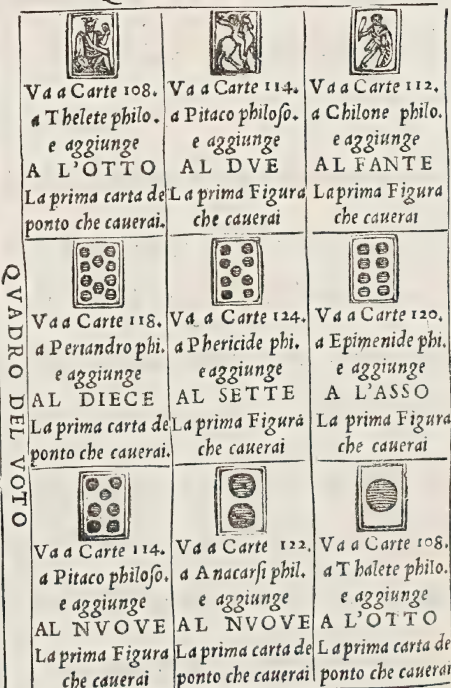 QVADRO DEL VOTO
Va a Carte 108.
a Thelete philo.
e aggiunge
A L'OTTO
La prima carta de
ponto che cauerai.
Va a Carte 114.
a Pitaco philoso.
e aggiunge
AL DVE
La prima Figura
che cauerai
Va a Carte 112.
a Chilone philo.
e aggiunge
AL FANTE
La prima Figura
che cauerai
Va a Carte 118.
a Periandro phi.
e aggiunge
AL DIECE
La prima carta de
ponto che cauerai.
Va a Carte 124.
a Phericide phi.
e aggiunge
AL SETTE
La prima Figura
che cauerai
Va a Carte 120.
a Epimenide phi.
e aggiunge
A L'ASSO
La prima Figura
che cauerai
Va a Carte 114.
a Pitaco philoso.
e aggiunge
AL NVOVE
La prima Figura
che cauerai
Va a Carte 122.
a Anacarsi phil.
e aggiunge
AL NVOVE
La prima carta de
ponto che cauerai
Va a Carte 108.
a Thalete philo.
e aggiunge
A L'OTTO
La prima carta de
ponto che cauerai